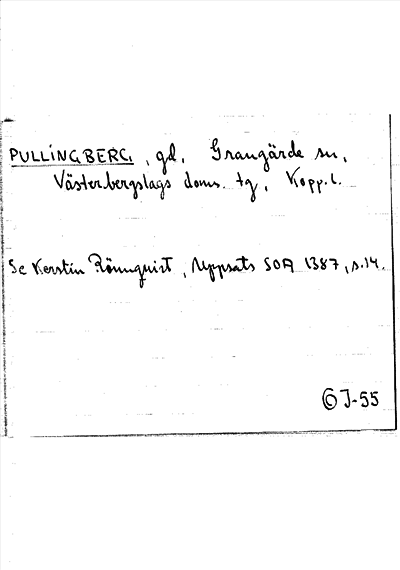 PULLINGBERG, gd, Grangärde sn,
Västerbergslags doms. tg, Kopp. l.
Se Kerstin Rönnquist, Uppsats SOA 1387, s.14.
© J-55